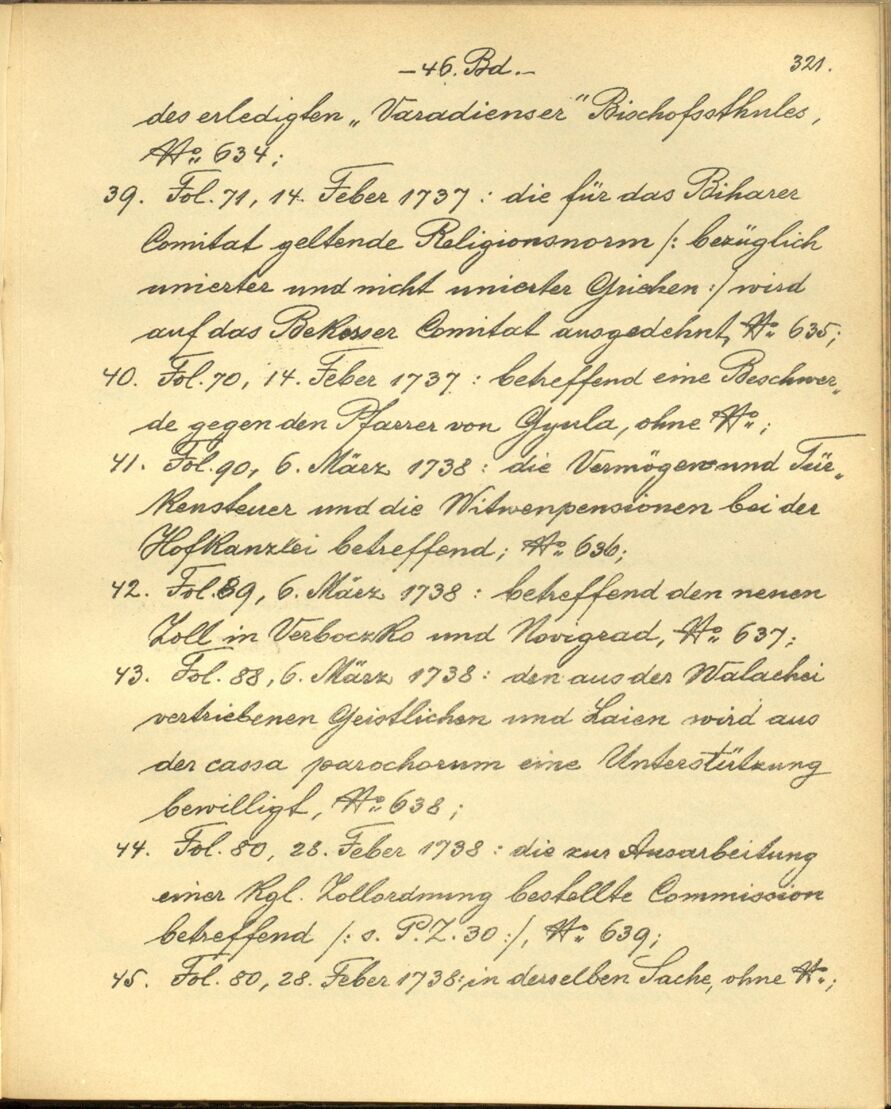 – 46. Bd. –
321.
des erledigten „Varadienser" Bischofssthules,
No 634;
39. Fol. 71, 14. Feber 1737 : die für das Biharer
Comitat geltende Religionsnorm /: bezüglich
unierter und nicht unierter Griechen :/ wird
auf das Bekesser Comitat ausgedehnt, No 635;
40. Fol. 70, 14. Feber 1737 : betreffend eine Beschwer„
de gegen den Pfarrer von Gyula, ohne No ;
41. Fol. 90, 6. März 1738 : die Vermögens und Tür„
kensteuer und die Witwenpensionen bei der
Hofkanzlei betreffend; No 636;
42. Fol. 89, 6. März 1738 : betreffend den neuen
Zoll in Verboczko und Novigrad, No 637;
43. Fol. 88, 6. März 1738 : den aus der Walachei
vertriebenen Geistlichen und Laien wird aus
der cassa parochorum eine Unterstützung
bewilligt, No 638 ;
44. Fol. 80, 28. Feber 1738 : die zur Ausarbeitung
einer Kgl. Zollordnung bestellte Commission
betreffend /: s. P. Z. 30 :/, No 639;
45. Fol. 80, 28. Feber 1738: in derselben Sache, ohne No ;